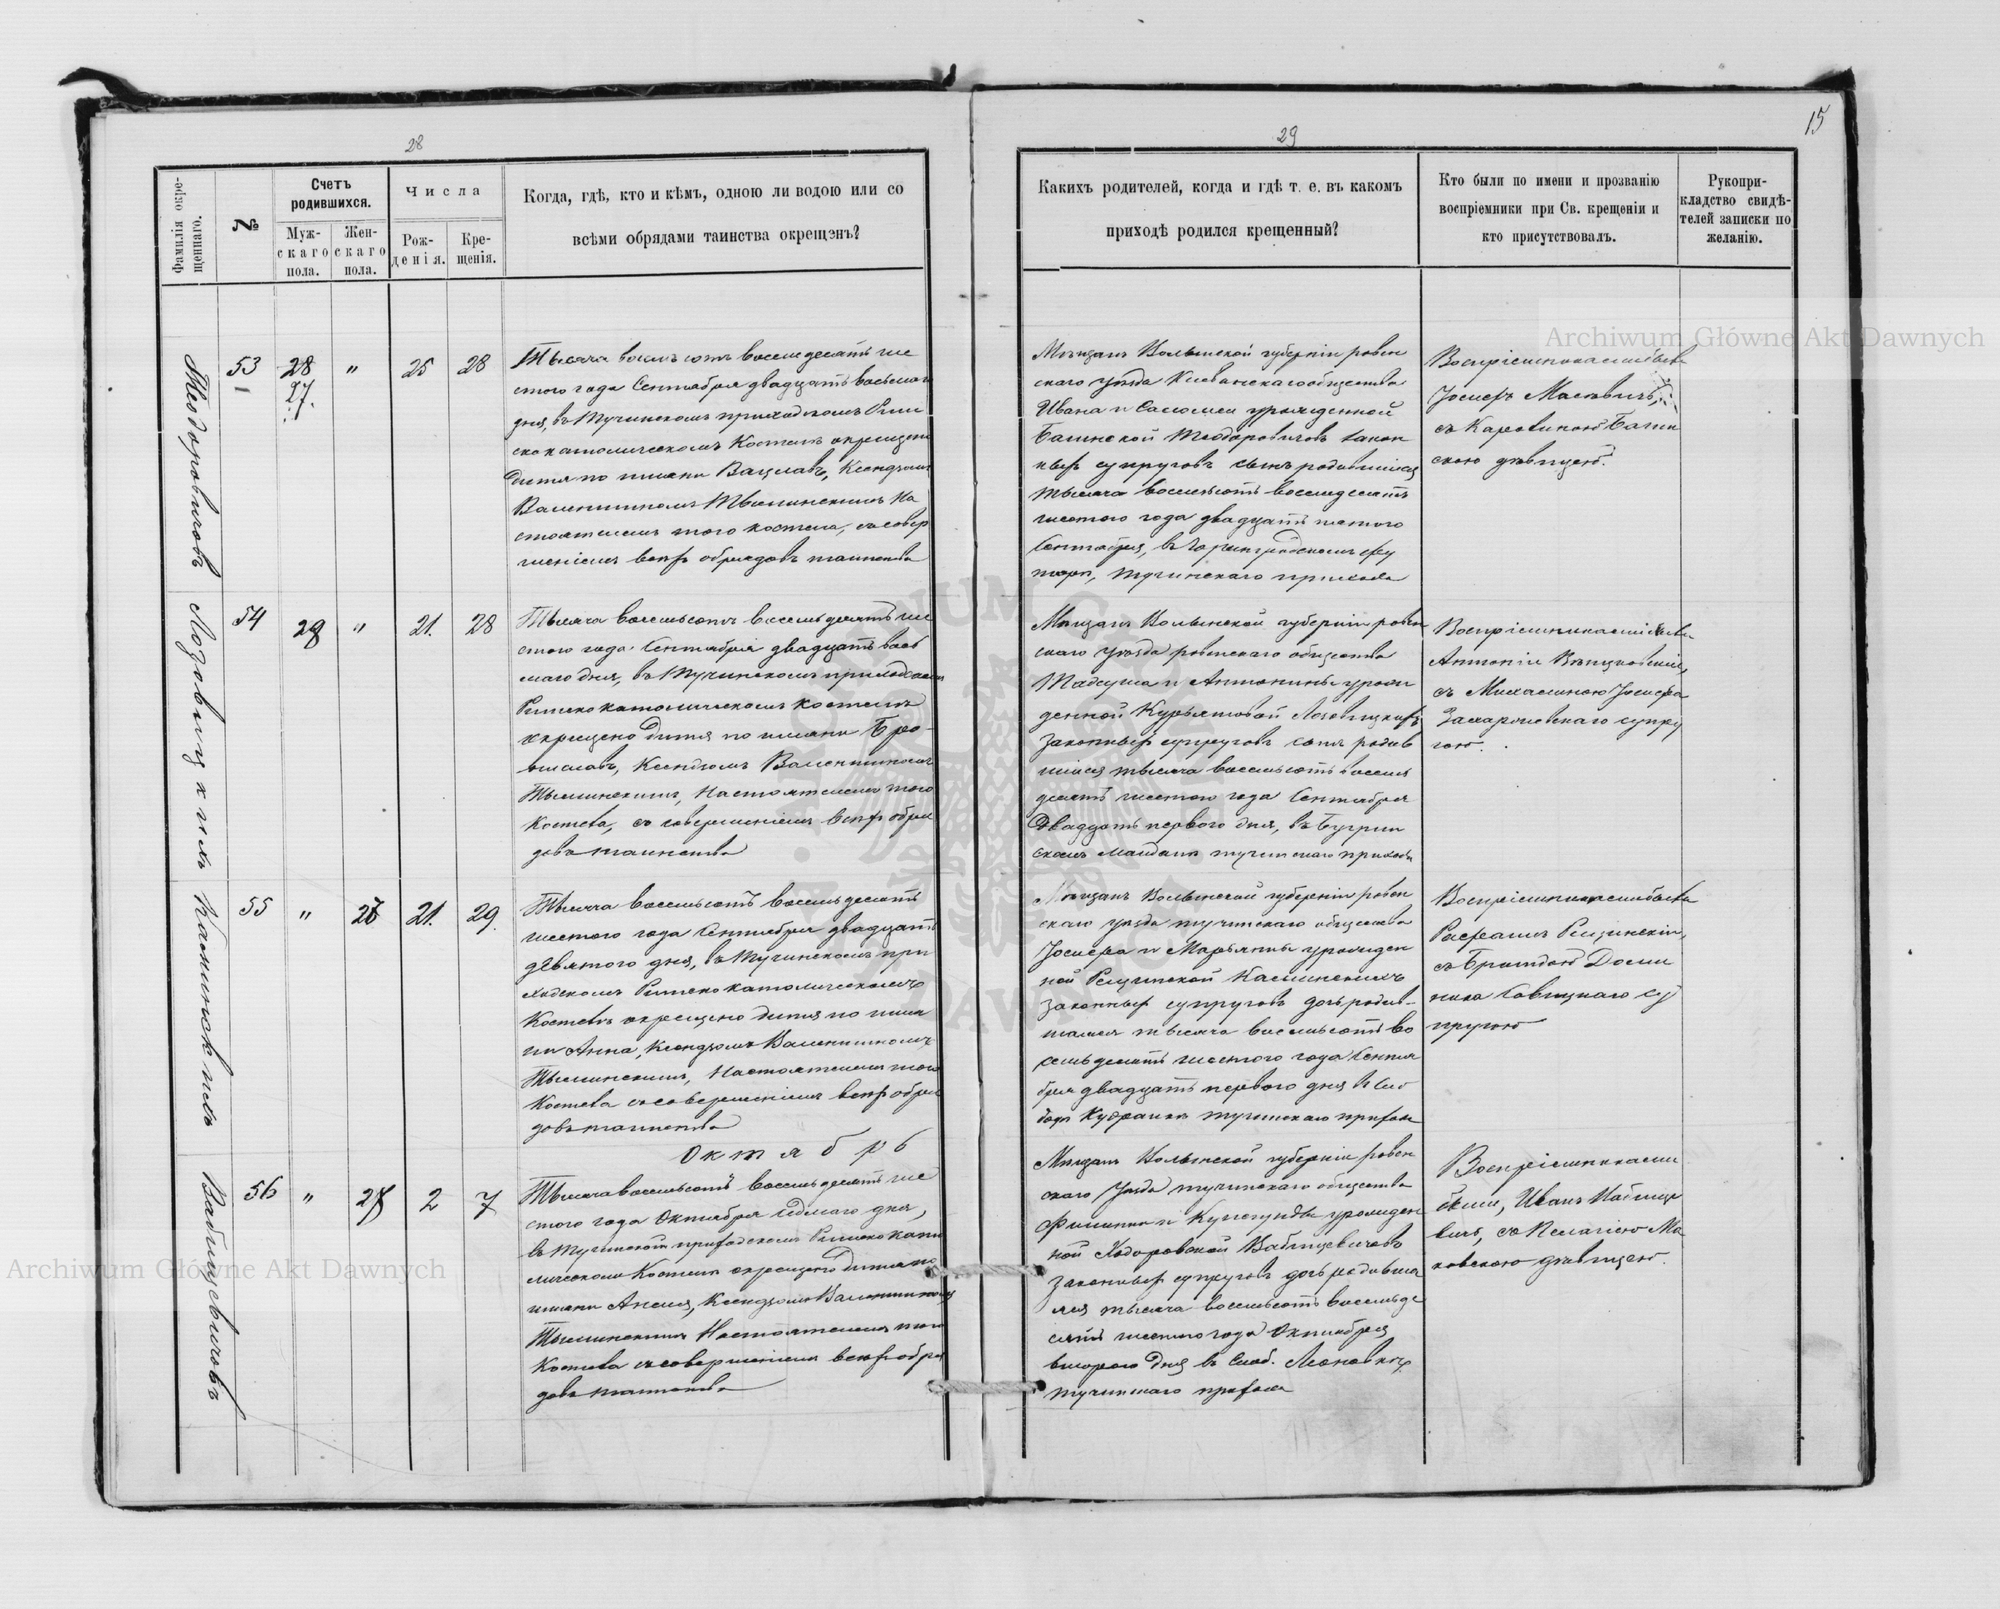 28
Фамилія окре-
щеннаго.
№
Счетъ
родившихся.
Муж-
скаго
пола.
Жен-
скаго
пола.
Числа
Рож-
денія.
Кре-
щенія.
Когда, гдѣ, кто и кѣмъ, одною ли водою или со
всѣми обрядами таинства окрещэнъ?
Теодоровичовъ
53 28 " 25 28
27.
Тысяча восемьсотъ восемдесятъ ше
стого года Сентября двадцать восьмаго
дня, въ Тучинскомъ приходскомъ Рим
скокатолическомъ Костелѣ окрещено
дитя по имени Вацлавъ, Ксендзомъ
Валентиномъ Тысминскимъ На
стоятелемъ того костела, съ совер
шеніемъ всѣхъ обрядовъ таинства
Лозовицкихъ
54 28 " 21. 28
Тысяча восемьсотъ восемьдесятъ ше
стого года Сентября двадцать вось
маго дня, въ Тучинскомъ приходскомъ
Римско католическомъ костелѣ
окрещено дитя по имени Бро-
ниславъ, Ксендзомъ Валентиномъ
Тысминскимъ, Настоятелемъ того
Костела, съ совершеніемъ всѣхъ обря
довъ таинства
Каминскихъ
55 " 21. 29.
Тысяча восемьсотъ восемьдесятъ
шестого года Сентября двадцать
девятого дня, въ Тучинскомъ при
ходскомъ Римско католическомъ
Костелѣ окрещено дитя по име
ни Анна, Ксендзомъ Валентиномъ
Тысминскимъ, Настоятелемъ того
Костела съ совершеніемъ всѣхъ обря
довъ таинства
Октябрь
Вабищевичовъ
56 " 2 7
Тысяча восемьсотъ восемьдесятъ ше
стого года Октября седмаго дня,
въ Тучинскомъ приходскомъ Римско като
лическомъ Костелѣ окрещено дитя по
имени Анеля, Ксендзомъ Валентиномъ
Тысминскимъ Настоятелемъ того
Костела съ совершеніемъ всѣхъ обря
довъ таинства
29
15
Какихъ родителей, когда и гдѣ т. е. въ какомъ
приходѣ родился крещенный?
Кто были по имени и прозванію
воспріемники при Св. крещеніи и
кто присутствовалъ.
Рукопри-
кладство свидѣ-
телей записки по
желанію.
Мѣщанъ Волынской губерніи ровен
скаго уѣзда Клеванскаго общества
Ивана и Саломеи урожденной
Багинской Теодоровичовъ закон
ныхъ супруговъ сынъ родившійся
тысяча восемьсотъ восемдесятъ
шестого года двадцать пятого
Сентября, въ Горинградскомъ ху
торѣ, тучинскаго прихода
Воспріемниками были
Іосифъ
съ Каролиною Багин
скою дѣвицею.
Мѣщанъ Волынской губерніи ровен
скаго уѣзда ровенскаго общества
Тадеуша и Антонины урож
денной Лозовицкихъ
законныхъ супруговъ сынъ родив
шійся тысяча восемьсотъ восемь
десятъ шестого года Сентября
Двадцать первого дня, въ Бугрин
скомъ Майданѣ тучинскаго прихода
Воспріемниками были
Антоній
съ Михалиною Іосифа
супру
гою.
Мѣщанъ Волынской губерніи ровен
скаго уѣзда тучинскаго общества
Іосифа и Марьянны урожден
ной Каминскихъ
законныхъ супруговъ дочь родив-
шаяся тысяча восемьсотъ во
семьдесятъ шестого года Сентя
бря двадцать первого дня въ Сло
бодѣ тучинскаго прихода
Воспріемниками были
Рафаилъ
съ Доми
ника Савицкаго су
пругою
Мѣщанъ Волынской губерніи ровен
скаго уѣзда тучинскаго общества
Филиппа и Кунегунды урожден
ной Ходоровской Вабищевичовъ
законныхъ супруговъ дочь родивша
яся тысяча восемьсотъ восемьде
сятъ шестого года Октября
второго дня въ Слоб.
тучинскаго прихода
Воспріемниками
были, Иванъ
съ Пелагіею Ма
ковскою дѣвицею.
Archiwum Główne Akt Dawnych
Archiwum Główne Akt Dawnych